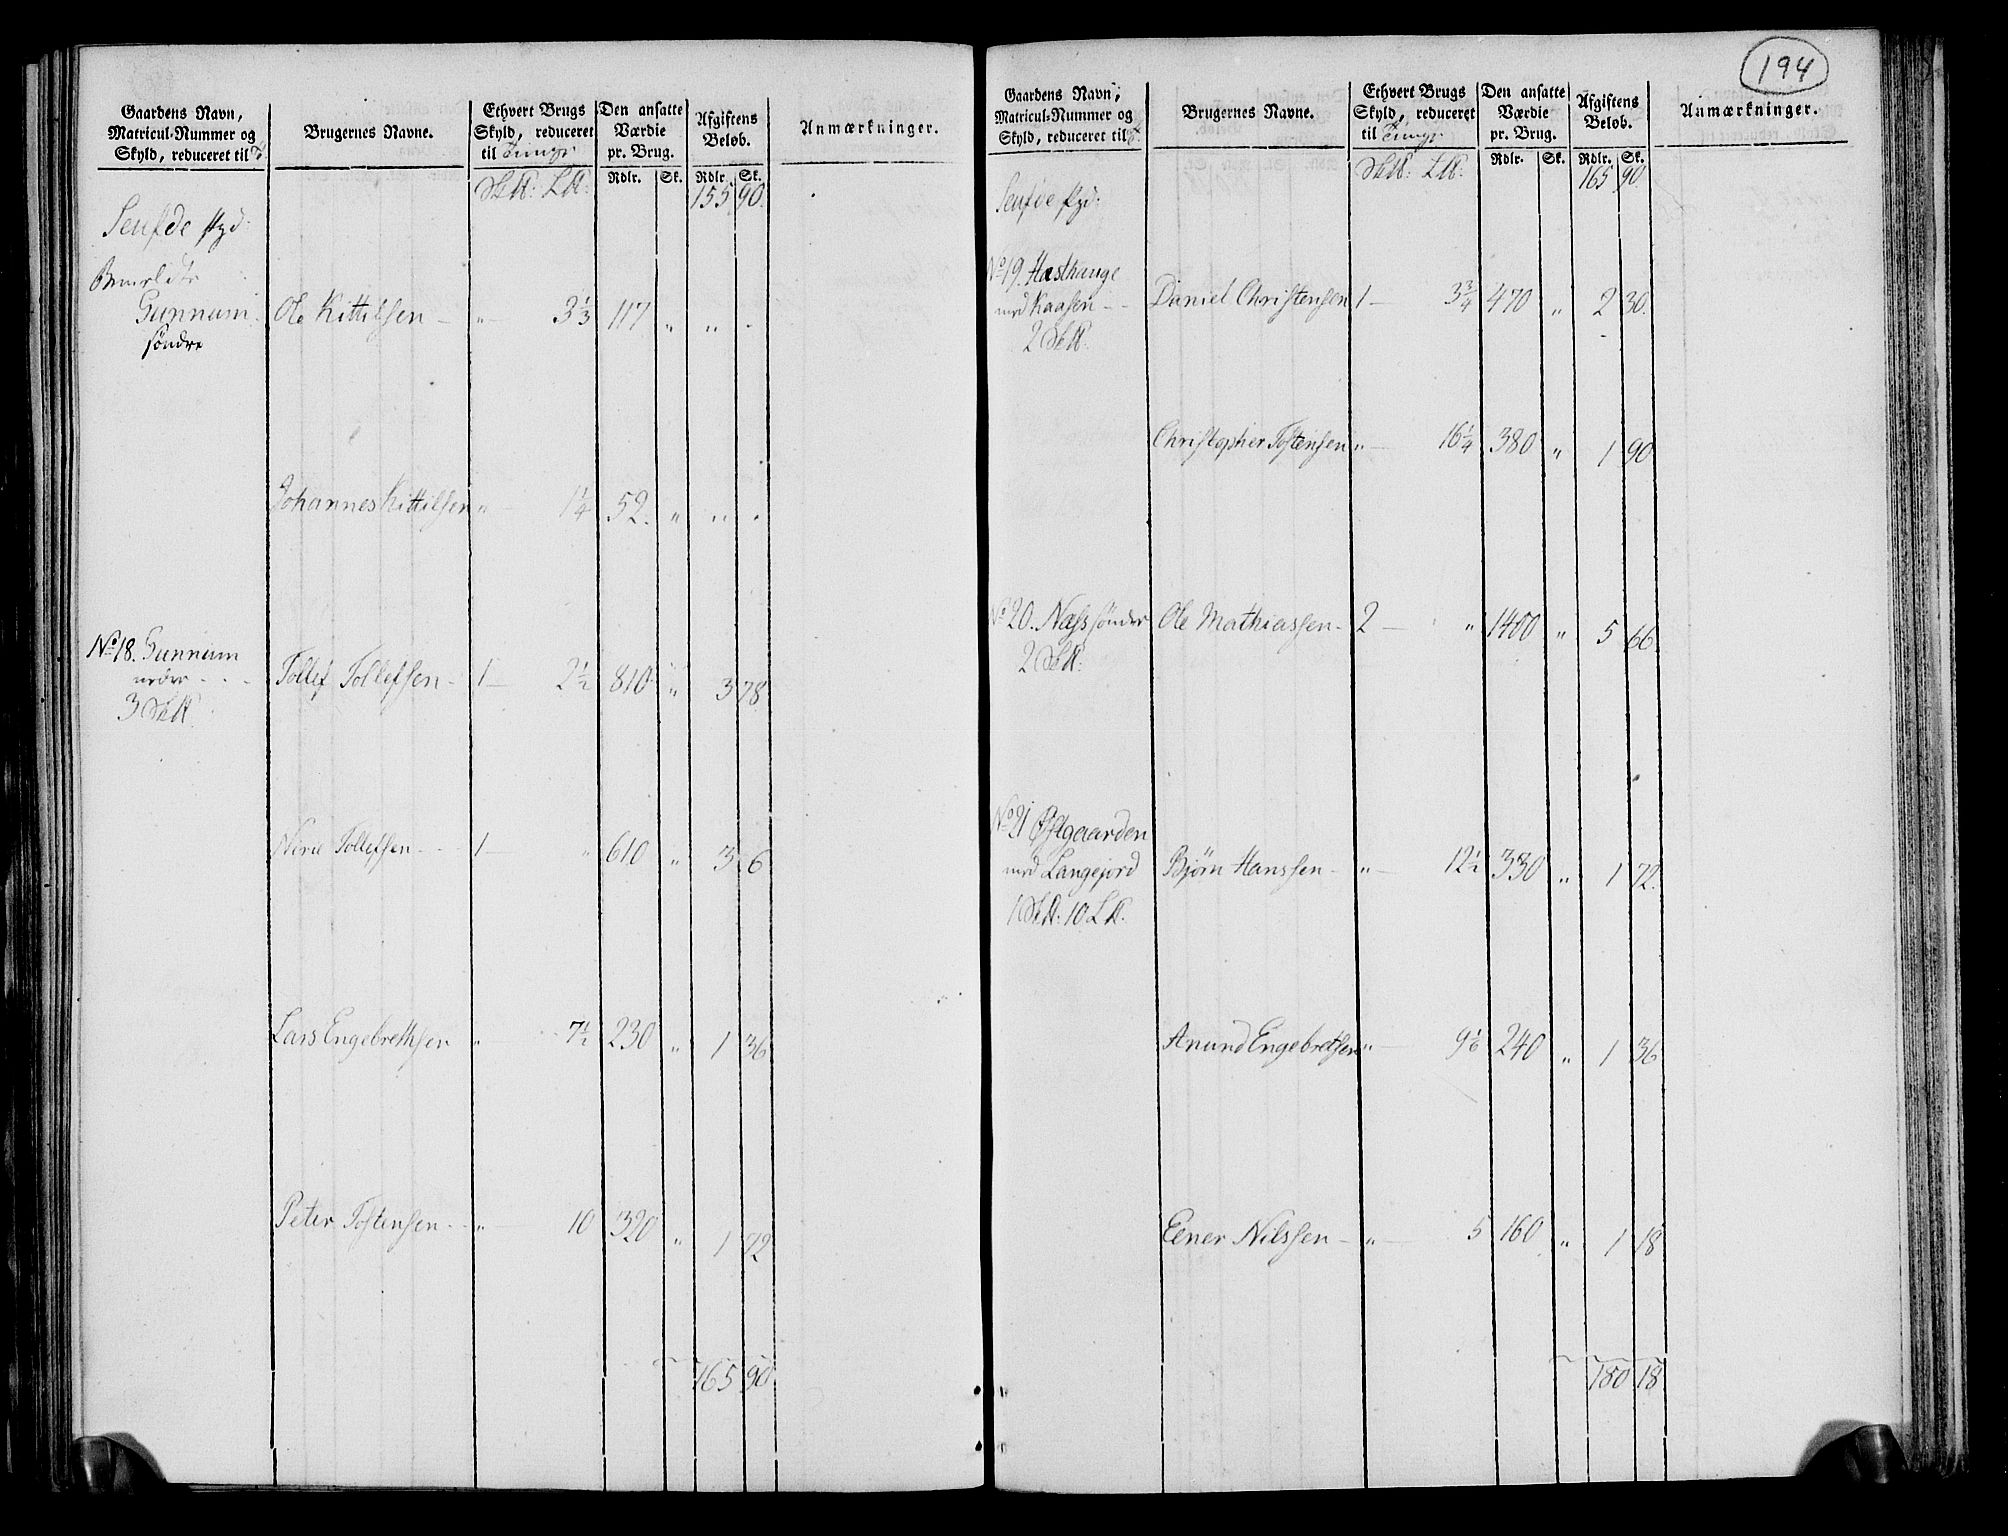 194
Gaardens Navn, Matricul-Nummer og Skyld, reduceret til
Brugernes Navne.
Ethvert Brugs Skyld, reduceret til
Den ansatte Værdie pr. Brug.
Afgiftens Beløb.
Anmærkninger.
Rdlr. Sk. Rdlr. Sk.
155 90.
Gunnum søndre
Ole Kittilsen – " 3 1/3 117 " " "
Johannes Kittilsen " 1 1/4 52. " " "
No 18. Gunnum nedre
3
Tollef Tollefsen – 1 – 2 1/2 810 " 3 78.
Tollefsen – 1 – " 610 " 3 6
Lars Engebrethsen " 7 1/2 230 " 1 36
Peter Tostensen – " 10 320 " 1 72
165 90
Gaardens Navn, Matricul-Nummer og Skyld, reduceret til
Brugernes Navne.
Ethvert Brugs Skyld, reduceret til
Den ansatte Værdie pr. Brug.
Afgiftens Beløb.
Anmærkninger.
Rdlr. Sk. Rdlr. Sk.
165 90
No 19. Hæsthauge
med Kaasen – –
2
Daniel Christensen 1 – 3 3/4 470 " 2 30.
Christopher Tostensen " – 16 1/4 380 " 1 90
No 20. Næss søndre
2
Ole Mathiassen – 2 – " 1400 " 5 66.
No 21 Østgaarden
med Langejord
1 10
Bjørn Hanssen – " – 12 1/2 330 " 1 72.
Anund Engebretsen " – 9 1/6 240 " 1 36
Eener Nilssen – " – 5 160 " 1 18
180 18